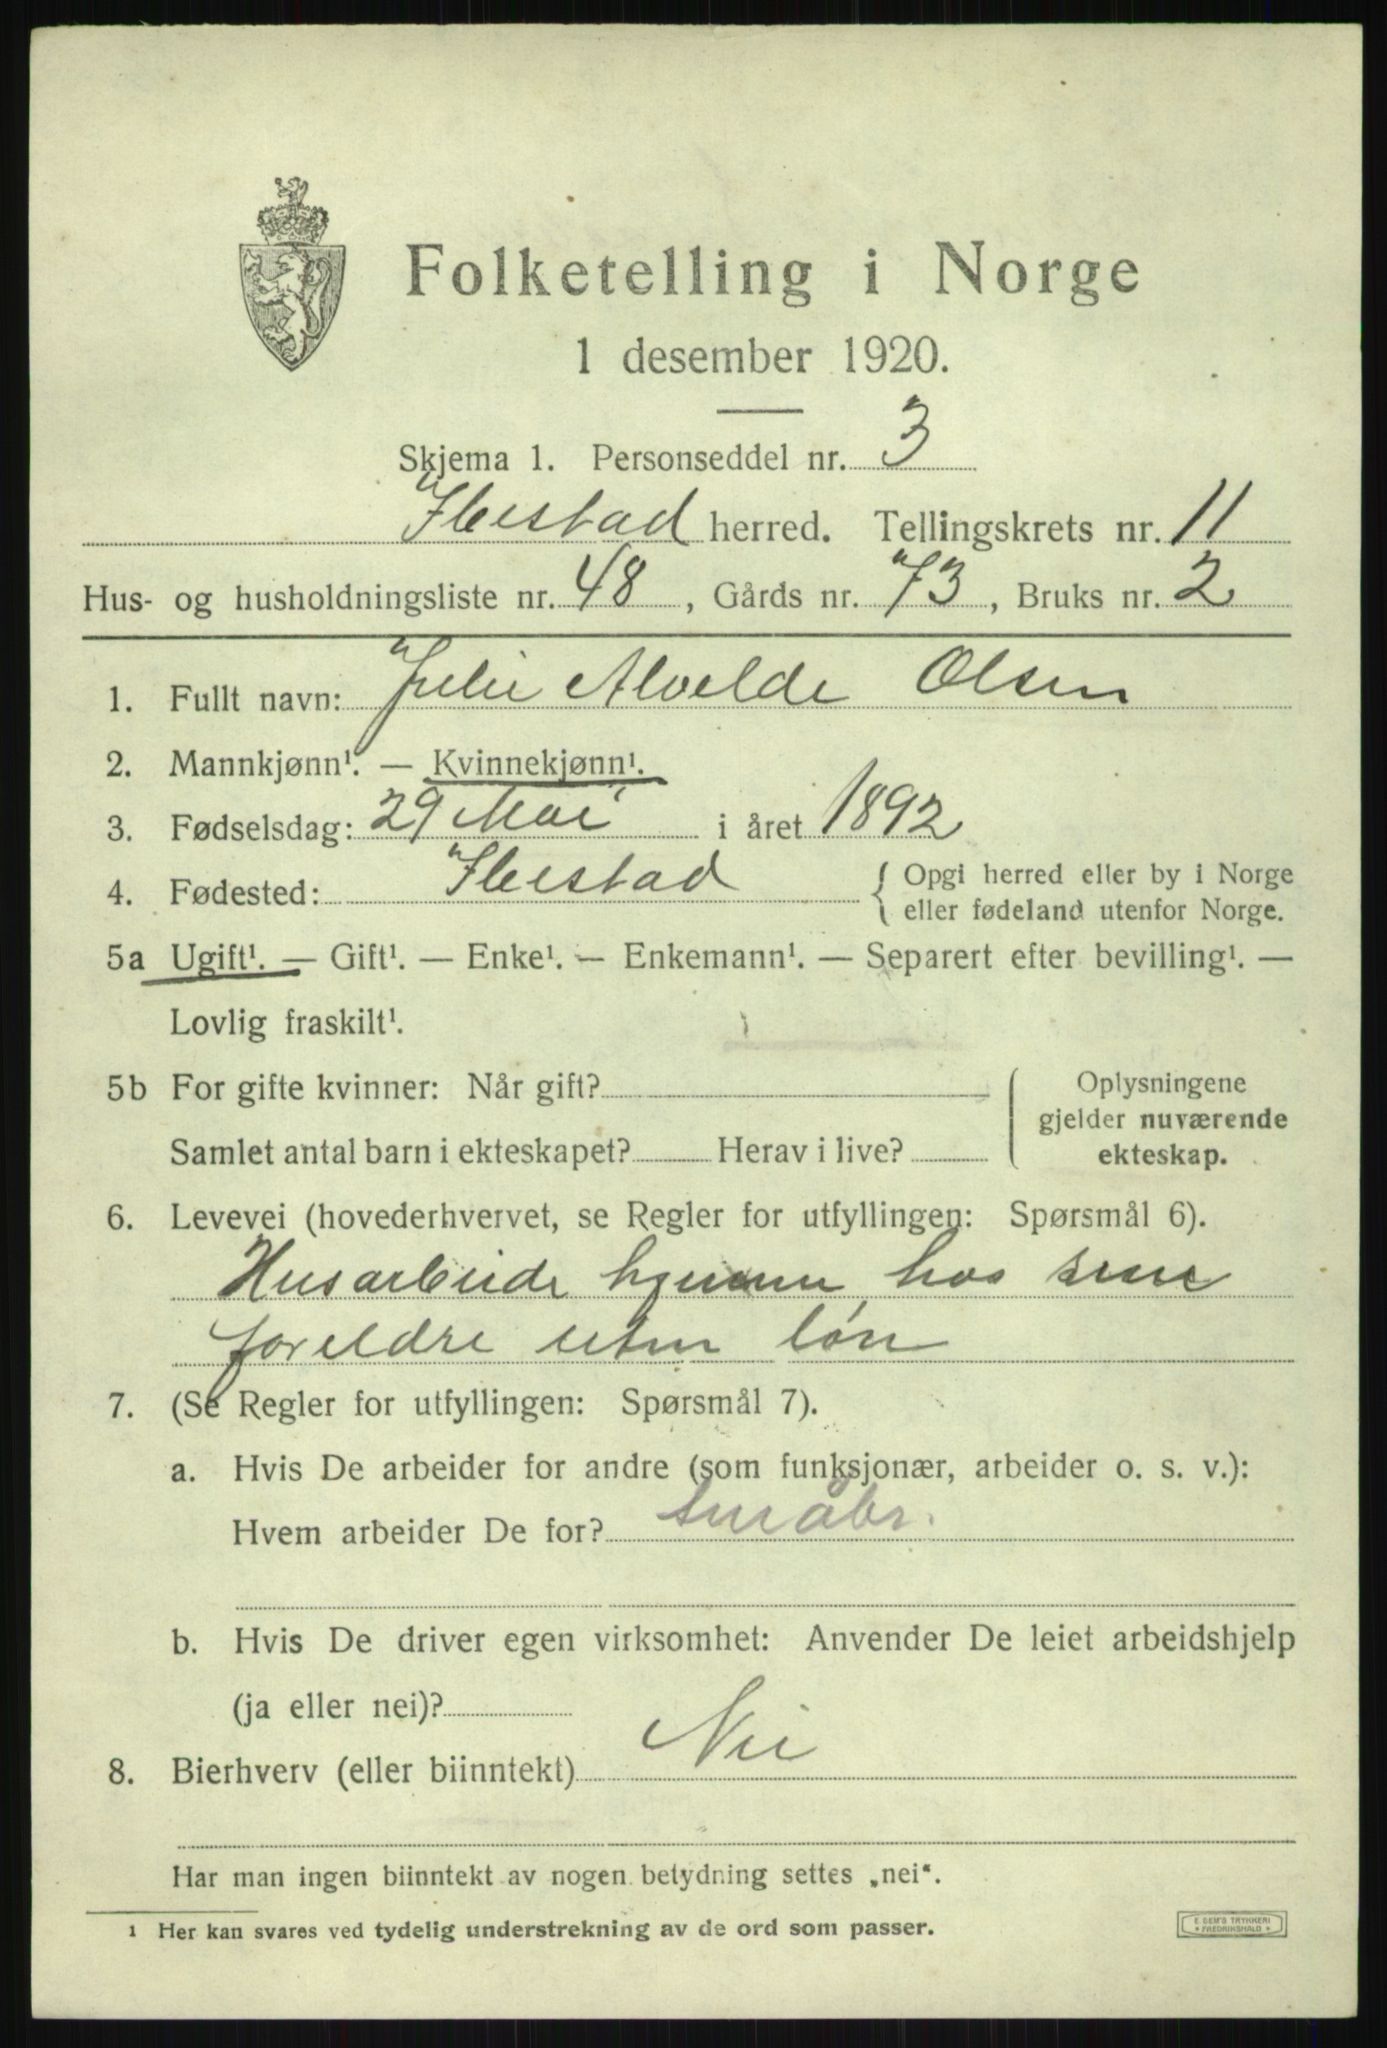 Folketelling i Norge
1 desember 1920.
Skjema 1. Personseddel nr. 3
Ibestad herred. Tellingskrets nr. 11
Hus- og husholdningsliste nr. 48, Gårds nr. 73, Bruks nr. 2
1. Fullt navn: Julie Alvelde Olsen
2. Mannkjønn¹. — Kvinnekjønn¹.
3. Fødselsdag: 29 Mai i året 1892
4. Fødested: Ibestad { Opgi herred eller by i Norge
eller fødeland utenfor Norge.
5a Ugift¹. — Gift¹. — Enke¹. — Enkemann¹. — Separert efter bevilling¹. —
Lovlig fraskilt¹.
5b For gifte kvinner: Når gift? Oplysningene
gjelder nuværende
Samlet antal barn i ekteskapet? Herav i live? ekteskap.
6. Levevei (hovederhvervet, se Regler for utfyllingen: Spørsmål 6).
Husarbeide hjemme hos sine
foreldre uten løn
7. (Se Regler for utfyllingen: Spørsmål 7).
a. Hvis De arbeider for andre (som funksjonær, arbeider o. s. v.):
Hvem arbeider De for? småbr.
b. Hvis De driver egen virksomhet: Anvender De leiet arbeidshjelp
(ja eller nei)?
8. Bierhverv (eller biinntekt) Nei
Har man ingen biinntekt av nogen betydning settes „nei“.
1 Her kan svares ved tydelig understrekning av de ord som passer.
E. SEM'S TRYKKERI
* FREDRIKSHALD *